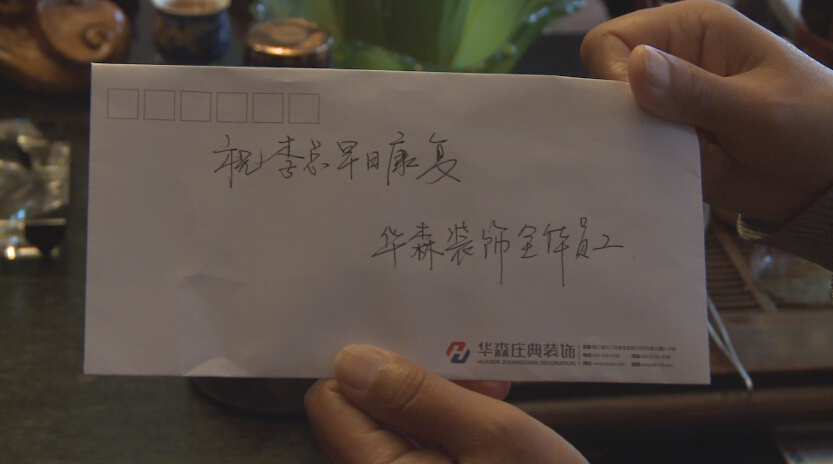 祝李总早日康复
华森装饰全体员工
华森庄典装饰
HUASEN ZHUANGDIAN DECORATION